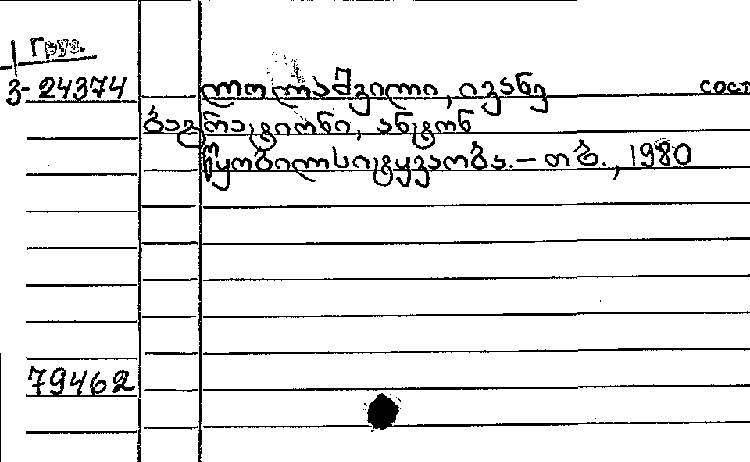 Груз.
3-24374
ლოლაშვილი, ივანე сост
ბაგრატიონი, ანტონ
წყობილსიტყვაობა. – თბ., 1980
79462